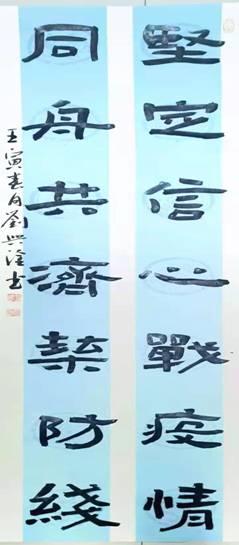 堅定信心戰疫情
同舟共濟築防綫
壬寅春月劉興書